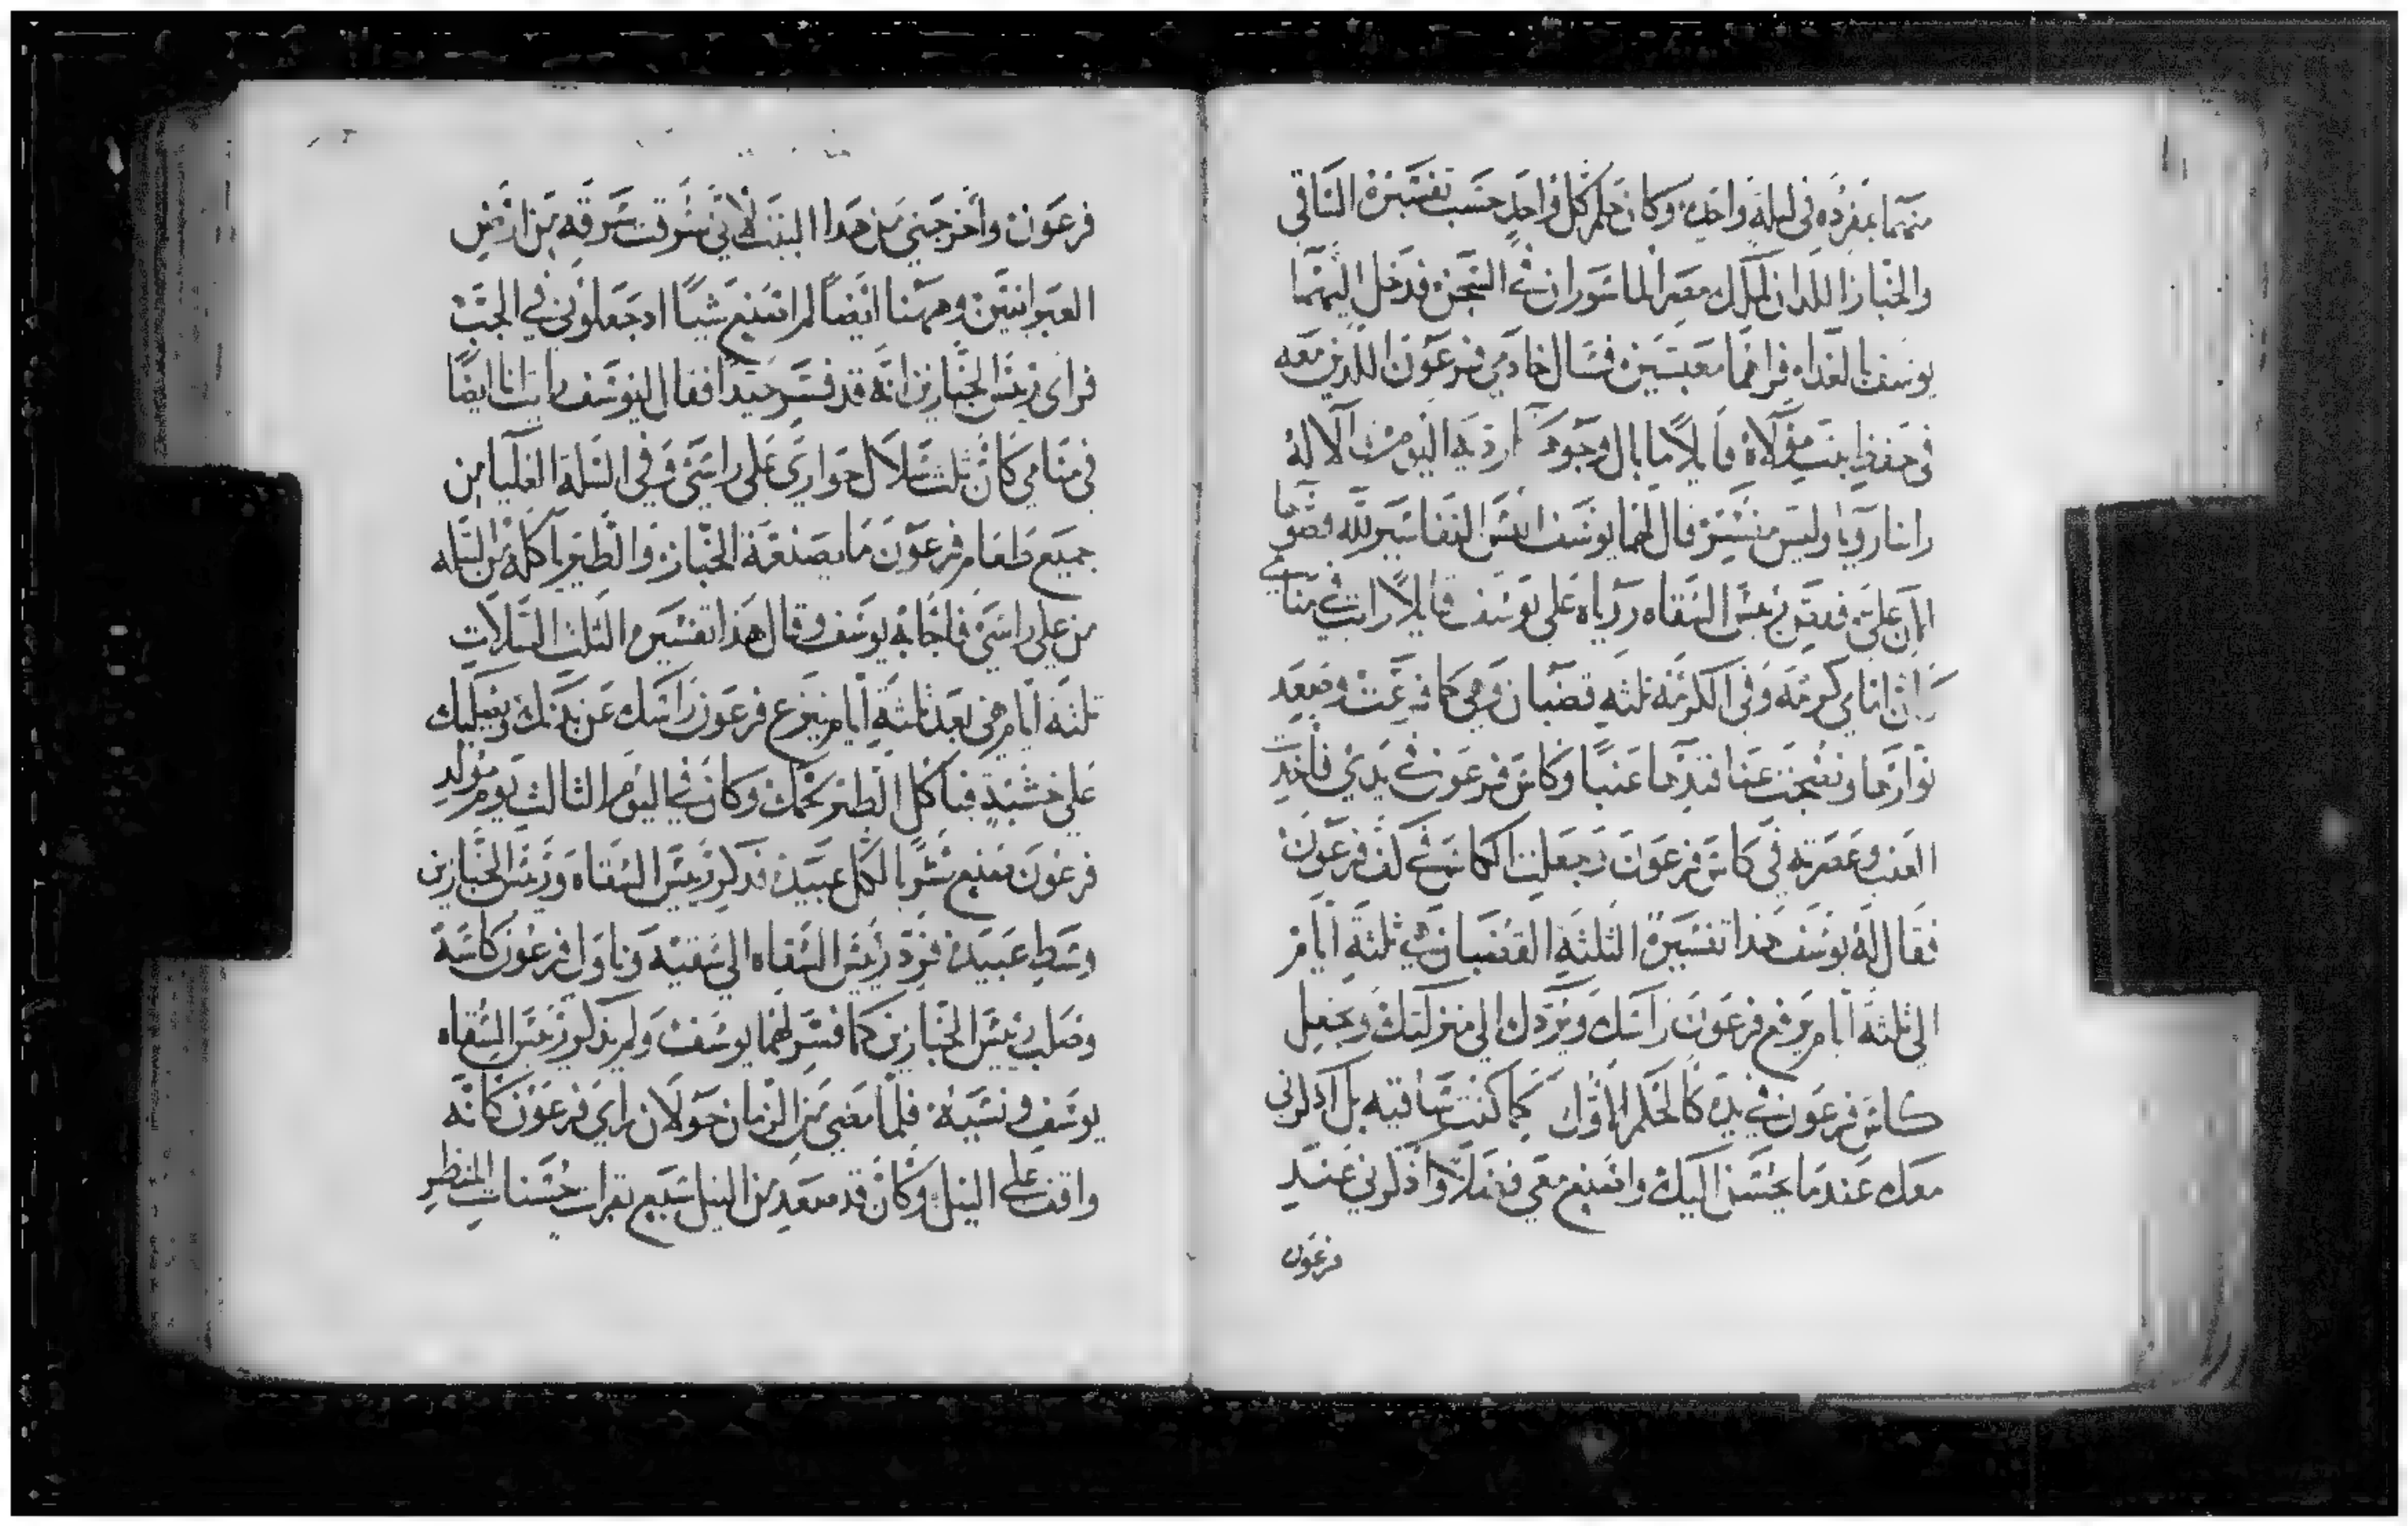 منهما بمفرده في ليلة واحده وكان حلم كل واحد حسب تفسيره الساقي
والخباز اللدان لملك مصر الماسوران في السجن فدخل اليهما
يوسف بالغداه فراهما معبسين فسال خادمي فرعون اللدين معه
في حفظ بيت مولاه قايلا ما بال وجوهكما رديه اليوم فقالا له
راينا رويا وليس مفسر قال لهما يوسف اليس التفاسير لله فقصوها
الان علي فقص ريس السقاه روياه على يوسف قايلا رايت في منامي
كان امامي كرمه وفي الكرمه ثلثه قضبان وهي كما فرعت وصعد
نوارها ونضجت عناقيدها عنبا وكاس فرعون في يدي فاخدت
العنب وعصرته في كاس فرعون وجعلت الكاس في كف فرعون
فقال له يوسف هدا تفسيره الثلثه القضبان هي ثلثة ايام
الى ثلثة ايام يرفع فرعون راسك ويردك الى منزلتك وتجعل
كاس فرعون في يده كالحكم الاول كما كنت ساقيه بل ادكرني
معك عندما يحسن اليك واصنع معي فضلا وادكرني عند
فرعون
فرعون واخرجني من هدا البيت لاني سرقت سرقه من ارض
العبرانيين وههنا ايضا لم اصنع شيا اد جعلوني في الجب
فراى ريس الخبازين انه قد فسر جيدا فقال ليوسف رايت انا ايضا
في منامي كان ثلث سلال حوارى على راسي وفي السلة العليا من
جميع طعام فرعون ما يصنعة الخباز والطير ياكله من السله
من على راسي فاجابه يوسف وقال هدا تفسيره الثلث السلات
ثلثة ايام هي بعد ثلثة ايام ينزع فرعون راسك عن بدنك ويصلبك
على خشبة فياكل الطير لحمك وكان في اليوم الثالث يوم مولد
فرعون صنع شربا لكل عبيده فدكر ريس السقاه وريس الخبازين
وسط عبيده فرد ريس السقاه الي سقيه وناول فرعون كاسه
وصلب ريس الخبازين كما فسر لهما يوسف ولم يدكر ريس السقاه
يوسف ونسيه فلما مضي من الزمان حولان راي فرعون كانه
واقف على النيل وكان قد صعد من النيل سبع بقرات حسنات المنظر